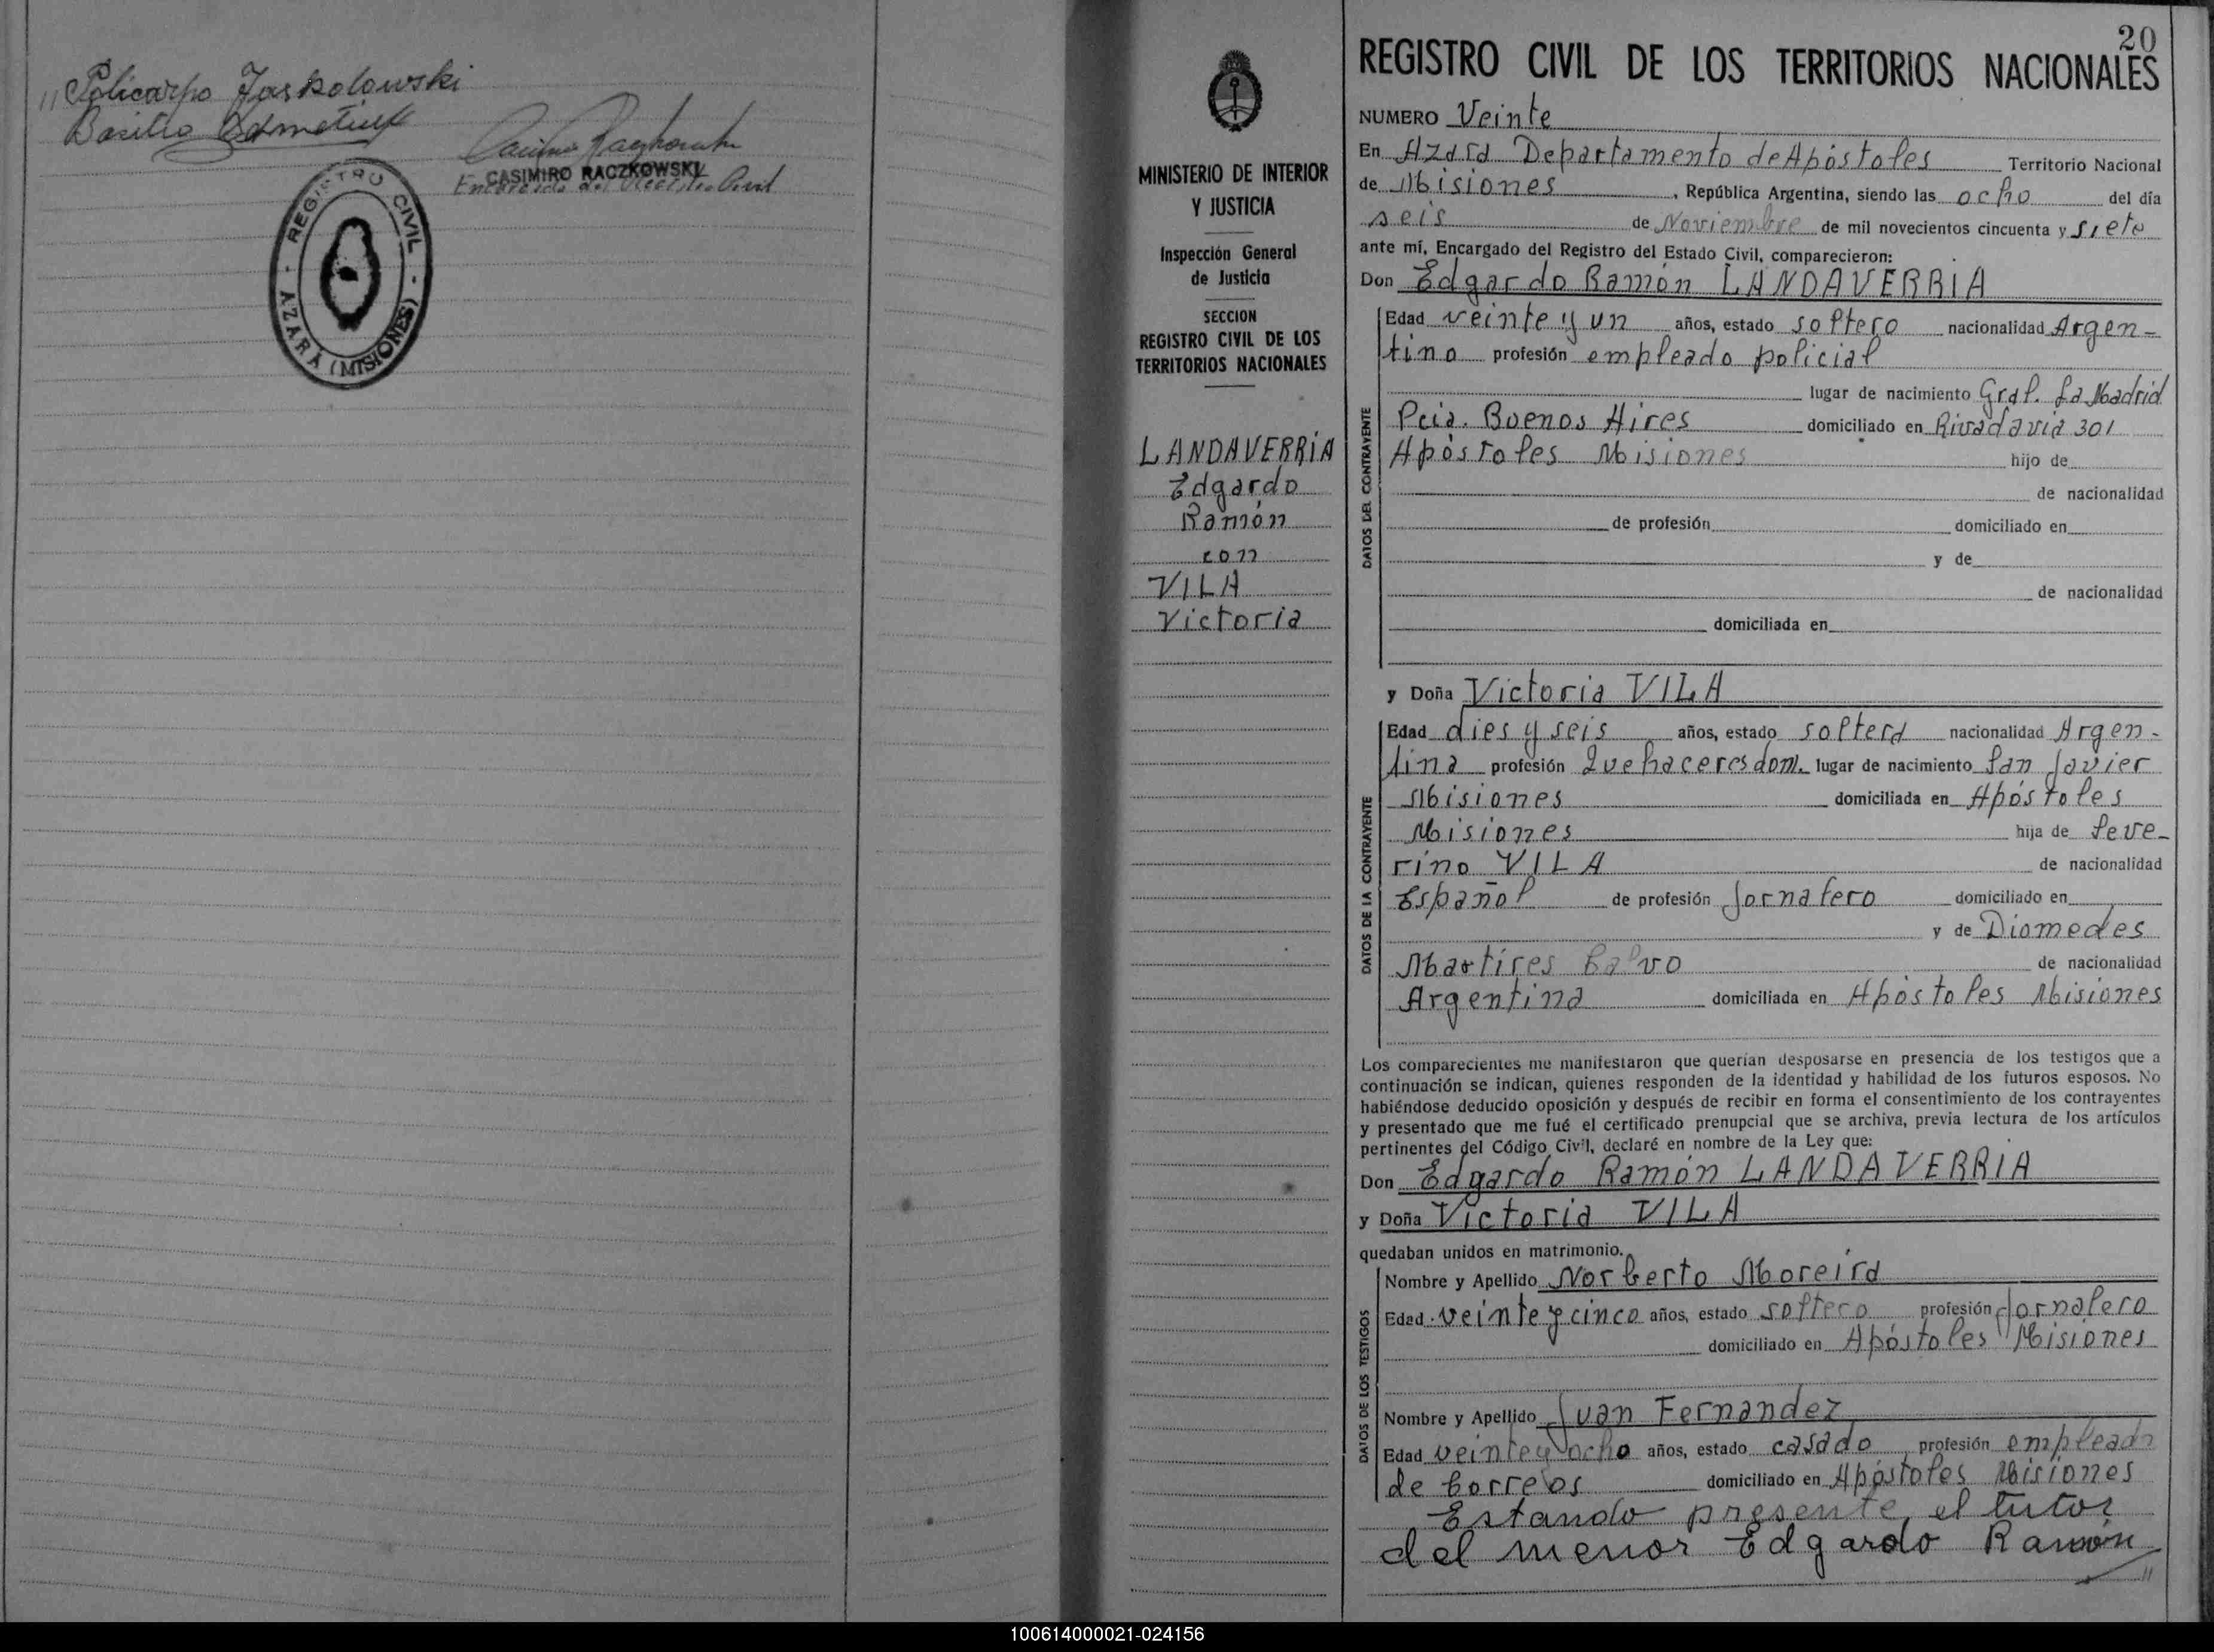 " Policarpo Jaskolowski
Basilio
CASIMIRO RACZKOWSKI
Encargado del Registro Civil
REGISTRO CIVIL - AZARA (MISIONES) -
MINISTERIO DE INTERIOR
Y JUSTICIA
Inspección General
de Justicia
SECCION
REGISTRO CIVIL DE LOS
TERRITORIOS NACIONALES
LANDAVERRIA
Edgardo
Ramón
con
VILA
Victoria
20
REGISTRO CIVIL DE LOS TERRITORIOS NACIONALES
NUMERO Veinte
En Azara Departamento de Apóstoles Territorio Nacional
de Misiones, República Argentina, siendo las ocho del día
seis de Noviembre de mil novecientos cincuenta y siete
ante mí, Encargado del Registro del Estado Civil, comparecieron:
Don Edgardo Ramón LANDAVERRIA
DATOS DEL CONTRAYENTE
Edad veinte y un años, estado soltero nacionalidad Argen-
tino profesión empleado policial
lugar de nacimiento Gral. La Madrid
Pcia. Buenos Aires domiciliado en Rivadavia 301
Apóstoles Misiones hijo de
de nacionalidad
de profesión domiciliado en
y de
de nacionalidad
domiciliada en
y Doña Victoria VILA
DATOS DE LA CONTRAYENTE
Edad dies y seis años, estado soltera nacionalidad Argen-
tina profesión Quehaceres dom. lugar de nacimiento San Javier
Misiones domiciliada en Apóstoles
Misiones hija de Seve-
rino VILA de nacionalidad
Español de profesión Jornalero domiciliado en
y de Diomedes
Martires Calvo de nacionalidad
Argentina domiciliada en Apóstoles Misiones
Los comparecientes me manifestaron que querían desposarse en presencia de los testigos que a
continuación se indican, quienes responden de la identidad y habilidad de los futuros esposos. No
habiéndose deducido oposición y después de recibir en forma el consentimiento de los contrayentes
y presentado que me fué el certificado prenupcial que se archiva, previa lectura de los artículos
pertinentes del Código Civil, declaré en nombre de la Ley que:
Don Edgardo Ramón LANDAVERRIA
y Doña Victoria VILA
quedaban unidos en matrimonio.
DATOS DE LOS TESTIGOS
Nombre y Apellido Norberto Moreira
Edad veinte y cinco años, estado soltero profesión Jornalero
domiciliado en Apóstoles Misiones
Nombre y Apellido Juan Fernandez
Edad veinte y ocho años, estado casado profesión empleado
de Correos domiciliado en Apóstoles Misiones
Estando presente el tutor
del menor Edgardo Ramón
"
100614000021-024156